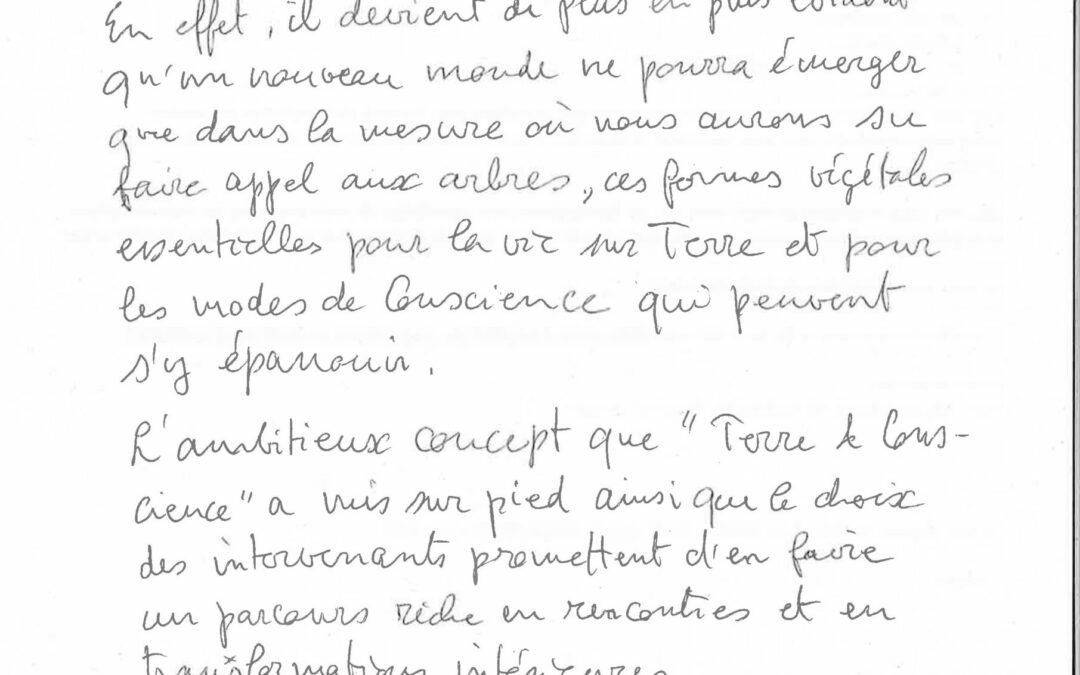 En effet, il devient de plus en plus évident
qu'un nouveau monde ne pourra émerger
que dans la mesure où nous aurons su
faire appel aux arbres, ces formes végétales
essentielles pour la vie sur Terre et pour
les modes de Conscience qui peuvent
s'y épanouir.
L'ambitieux concept que "Terre & Cons-
cience" a mis sur pied ainsi que le choix
des intervenants promettent d'en faire
un parcours riche en rencontres et en
transformations intérieures